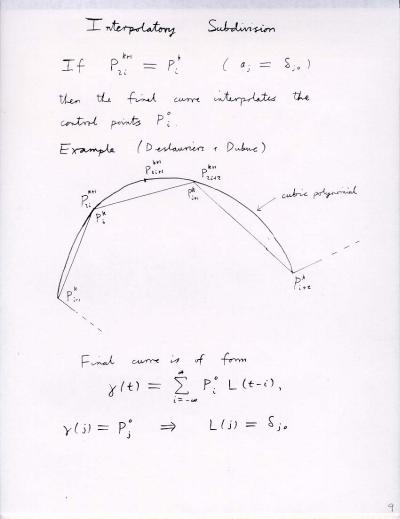 Interpolatory Subdivision
If P_{2i}^{k+1} = P_i^k ( a_j = δ_{j0} )
then the final curve interpolates the
control points P_i^0.
Example (Deslauriers + Dubuc)
P_{2i+1}^{k+1}
P_{2i}^{k+1} P_{2i+2}^{k+1}
P_i^k P_{i+1}^k cubic polynomial
P_{i-1}^k P_{i+2}^k
Final curve is of form
γ(t) = ∑_{i=-∞}^{∞} P_i^0 L(t-i),
γ(j) = P_j^0 ⇒ L(j) = δ_{j0}
9